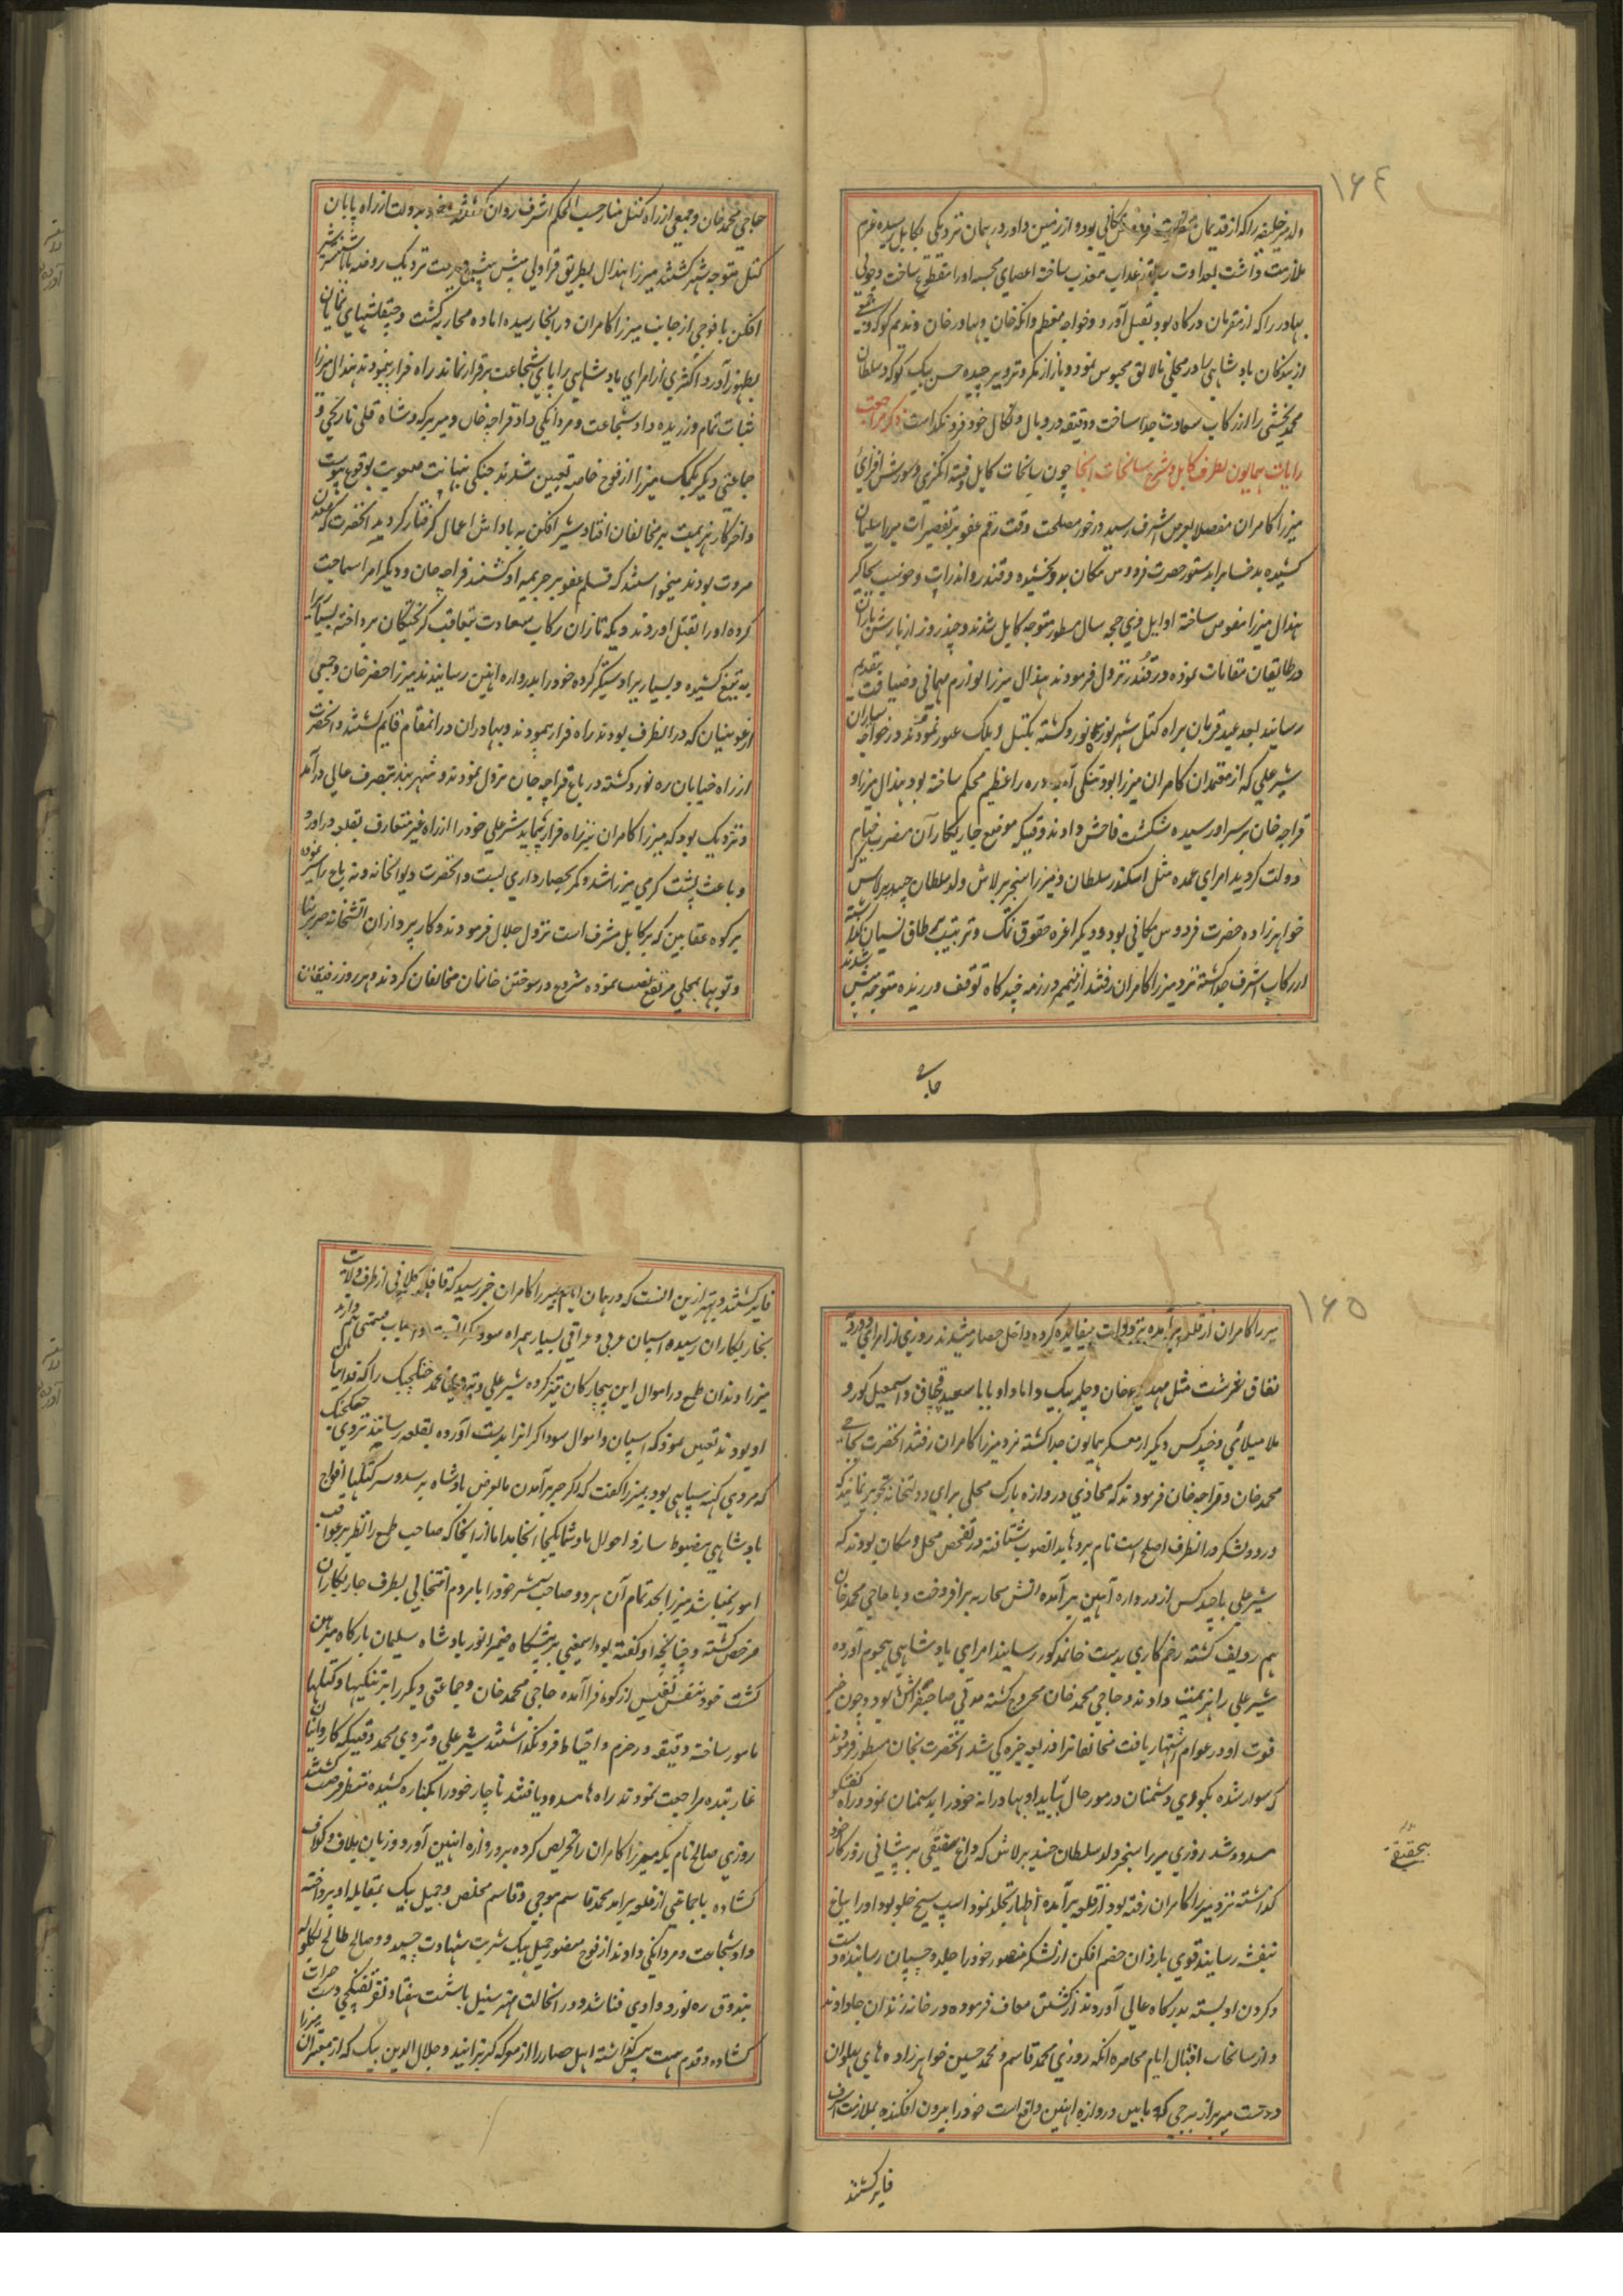 ۱۶۴
ولد میر خلیفه را که از قدیمان حضرت فردوس مکانی بود و از زمین داور در همان نزدیکی بکابل رسیده عزم
ملازمت داشت بعداوت سابق بعذاب تعذیب ساخته اعضای مجسه اورا منقطع ساخت و چولی
بهادر را که از مقربان درکاه بود بقتل آورد و خواجه معظم و اتکه خان و بهادر خان و ندیم کوکه و بعضی
از بندکان بادشاهی را در محلی نالایق محبوس نمود و باز از مکر و تزویر چیده حسن بیک کوکه و سلطان
محمد بخشی را از رکاب سعادت جدا ساخت و دقیقه در وبال و نکال خود فرو نکذاشت ذکر مراجعت
رایات همایون بطرف کابل و شرح سانحات آنجا چون سانحات کابل و فتنه انکیزی و شورش افزای
میرزا کامران مفصلا بعرض اشرف رسید در خور مصلحت وقت رقم عفو بر تقصیرات میرزا سلیمان
کشیده بدخشان را بدستور حضرت فردوس مکان بدو بخشیده و قندز و اندراب و خوست بجاکیر
هندال میرزا مفوض ساخته اوایل ذی حجه سال مسطور متوجه کابل شدند و چند روز از بارش باران
در طالیقان مقامات نموده در قندز نزول فرمودند هندال میرزا لوازم مهمانی و ضیافت بتقدیم
رسانید بعد عید قربان براه کتل شبر نوره نورد کشته بکتل ریلک عبور نمودند در خواجه ستاران
شیر علی که از معتمدان کامران میرزا بود تنکی آب دره را عظیم محکم ساخته بود هندال میرزا و
قراجه خان بر سر او رسیده شکست فاحش دادند وقتیکه موضع چاریکاران مضرب خیام
دولت کردید امرای عمده مثل اسکندر سلطان و میرزا سنجر برلاس ولد سلطان جنید برلاس
خواهرزاده حضرت فردوس مکانی بود و دیکر اعزه حقوق نمک و تربیت بر طاق نسیان کذاشته
از رکاب اشرف جدا کشته نزد میرزا کامران رفتند از نیمه در زمه چند کاه توقف ورزیده متوجه پیش شدند
حاجی
حاجی محمد خان و جمعی از راه کتل منار حسب الحکم اشرف روان کشتند و خود بدولت از راه پایان
کتل متوجه شهر کشتند میرزا هندال بطریق قراولی پیش پیش میرفت نزدیک روضه بابا ششپر شیر
افکن با فوجی از جانب میرزا کامران در انجا رسیده اماده محاربه کشت و چپقلشهای نمایان
بظهور آورد اکثری از امرای بادشاهی را پای شجاعت برقرار نماند راه فرار پیمودند هندال میرزا
ثبات تمام ورزیده داد شجاعت و مردانکی داد قراجه خان و میر برکه و شاه قلی نارنجی و
جماعتی دیکر بکمک میرزا از فوج خاصه تعیین شدند جنکی بنهایت صعوبت بوقوع پیوست
و اخر کار هزیمت بر مخالفان افتاد شیر افکن به پاداش اعمال کرفتار کردید انحضرت که معدن
مروت بودند میخواستند که قلم عفو بر جریمه او کشند قراجه خان و دیکر امرا سماجت
کرده اورا بقتل اوردند و یکه تازان رکاب سعادت بتعاقب کریختکان پرداخته بسیار را
به تیغ کشیده و بسیار را دستکیر کرده خود را بدروازه اهنین رسانیدند میرزا خضر خان و جمعی
ارغونیان که در انطرف بودند راه فرار پیمودند و بهادران در انمقام قایم کشتند و انحضرت
از راه خیابان ره نورد کشته در باغ قراجه خان نزول نمودند و شهر بند بتصرف عالی درآمد
و نزدیک بود که میرزا کامران نیز راه فرار پیماید شیر علی خود را از راه غیر متعارف بقلعه در اورد
و باعث پشت کرمی میرزا شد و کمر بحصارداری بست و انحضرت دیوانخانه و ته باغ را سیر نموده
بر کوه عقابین که بر کابل مشرف است نزول جلال فرمودند و کار پردازان اتشخانه ضربزنها
و توپها بمحلی مرتفع نصب نموده شروع در سوختن خانمان مخالفان کردند و هر روز رفیقان
۱۶۵
میرزا کامران از قلعه برآمده تردودات بیفایده کرده داخل حصار میشدند روزی از امرای دورویه
نفاق سرشت مثل مهدی خان و چلمه بیک و اباد او بابا سعید قبچاق و اسمعیل کور و
ملا میلائی و چند کس دیکر از معسکر همایون جدا کشته نزد میرزا کامران رفتند انحضرت بحاجی
محمد خان و قراجه خان فرمودند که محاذی دروازه یارک محلی برای دولتخانه تجویز نمایند که
ورود لشکر در انطرف اصلح است نام برده ها بدانصوب شتافته در تفحص محل و مکان بودند که
شیر علی با چند کس از دروازه آهنین برآمده اتش محاربه بر افروخت و با حاجی محمد خان
هم ردیف کشته زخم کاری بدست خان مذکور رسانید امرای بادشاهی هجوم آورده
شیر علی را هزیمت دادند و حاجی محمد خان مجروح کشته مدتی صاحبفراش بود و چون خبر
فوت او در عوام اشتهار یافت مخالفانرا فی الجمله چیره کی شد انحضرت بخان مسطور فرمودند
که سوار شده بکوی دشمنان در مور حال بیاید او بهادرانه خود را بدشمنان نمود و راه کفتکو
مسدود شد روزی میرزا سنجر ولد سلطان جنید برلاش که داغ حقیقی بر پیشانی روزکار خود
کذاشته نزد میرزا کامران رفته بود از قلعه برآمده اظهار تجلد نمود اسپ سیخ جلو بود اورا بباغ
بنفشه رسانید قوی بازوان خصم افکن از لشکر منصور خود را جلد و چسپان رسانیده دست
و کردن او بسته بدرکاه عالی آوردند از کشتن معاف فرموده در خانه زندان جا دادند
و از سانحات اقبال ایام محاصره انکه روزی محمد قاسم و محمد حسین خواهرزاده های پهلوان
دوست میر بر از برجی که مابین دروازه اهنین واقع است خود را بیرون افکنده بملازمت اشرف
فایز کشتند
بی حقیقی
فایز کشتند و بهتر ازین انست که در همان ایام میرزا کامران خبر رسید که قافله کلانی از طرف ولایت
بچاریکاران رسیده اسپان عربی و عراقی بسیار همراه سوداکرانست و اسباب قیمتی هم دارند
میرزا دندان طمع در اموال این بیچارکان تیز کرده شیر علی و تردی محمد جنکجنک را که فدائیان
او بودند تعیین نمود که اسپان و اموال سوداکرانرا بدست آورده بقلعه رسانیند تردی جنکجنک
که مردی کهنه سپاهی بود بمیرزا کفت که اکر خبر برآمدن ما بعرض بادشاه برسد و سر کتلها افواج
بادشاهی مضبوط سازند احوال ما و شما یکجا انجامد اما از انجا که صاحب طمع را نظر بر عواقب
امور نمیباشد میرزا بجد تمام آن هر دو صاحب شر خود را با مردم انتخابی بطرف چاریکاران
مرخص کشته و چنانچه او کفته بود اسمعنی بر پیشکاه ضمیر انور بادشاه سلیمان بارکاه مبرهن
کشت خود بنفس نفیس از کوه فرا آمده حاجی محمد خان و جماعتی دیکر را بر تنکیها و کتلها
مامور ساخته دقیقه در حزم و احتیاط فرو نکذاشتند شیر علی و تردی محمد وقتیکه کاروانیان را
غارت نموده مراجعت نمودند راه ها مسدود یافتند ناچار خود را بکناره کشیده منتظر فرصت کشتند
روزی صالح نام یکه میرزا کامران را تحریص کرده بر دروازه اهنین آورد و زبان بلاف و کزاف
کشاده با جماعتی از قلعه برامد محمد قاسم موجی و قاسم مخلص و جمیل بیک بمقابله او پرداخته
داد شجاعت و مردانکی دادند از فوج منصور جمیل بیک شربت شهادت چشید و صالح طالح بکلوله
بندوق ره نورد وادی فنا شد و در انحالت مهتر سنبل با شصت هفتاد نفر تفنکچی دست جرات
کشاده و قدم همت پیش کذاشته اهل حصار را از معرکه کریزانیدند و جلال الدین بیک که از مقربان میرزا